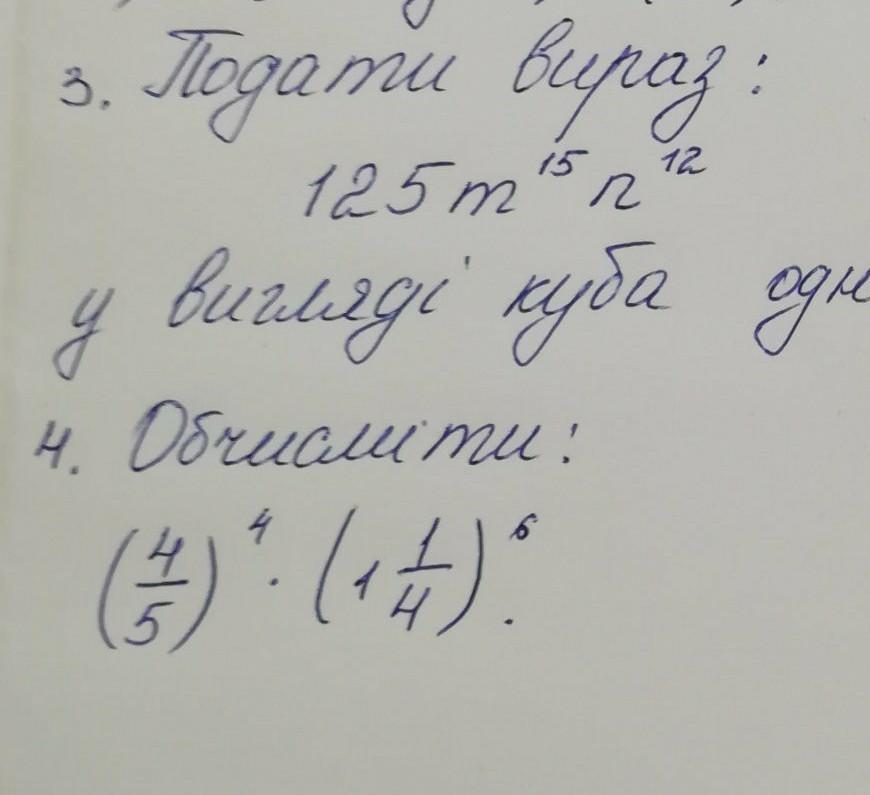 3. Подати вираз:
125m^15 n^12
у вигляді куба одн
4. Обчислити:
(4/5)^4 · (1 1/4)^6.